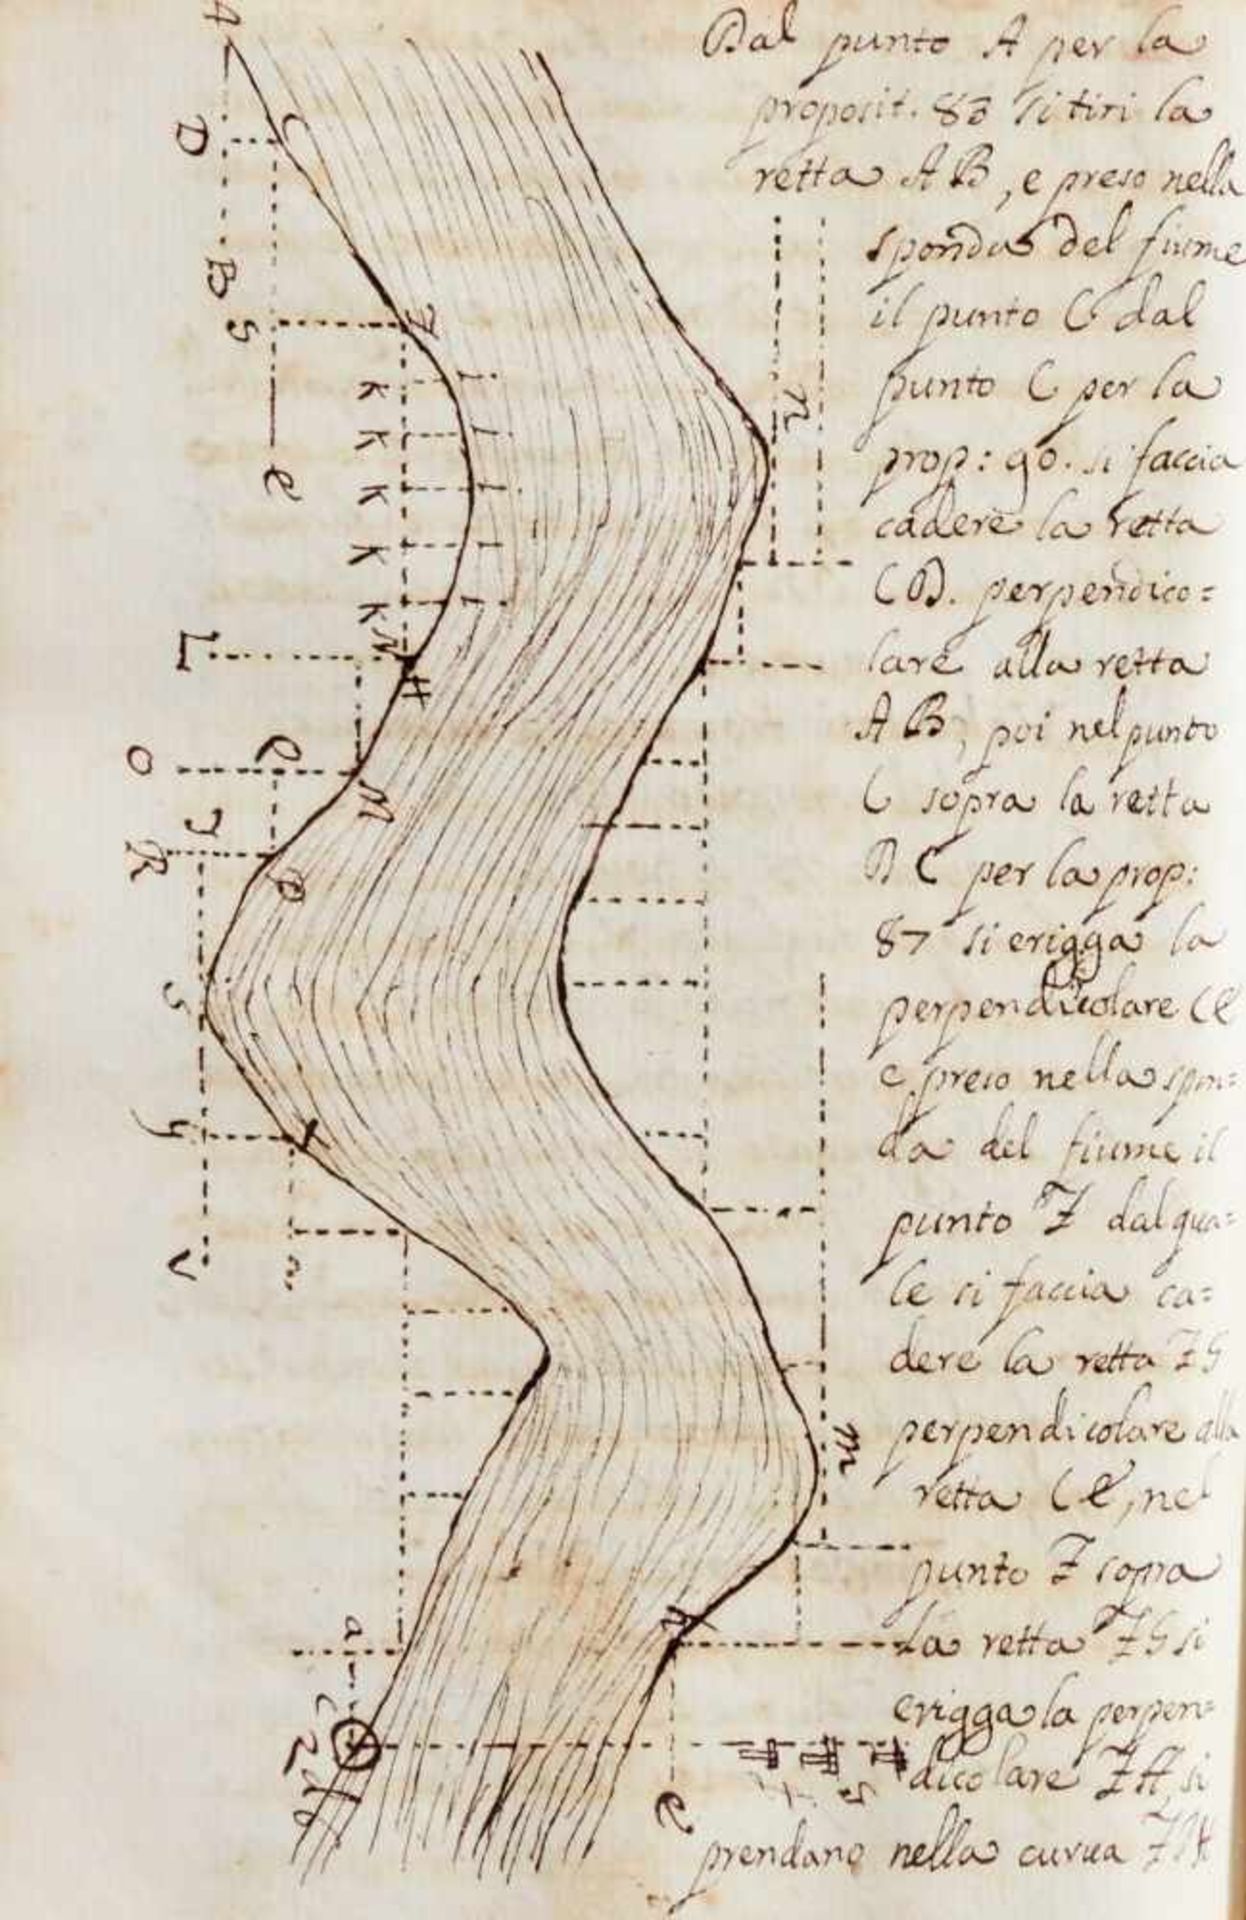 Dal punto A per la
proposit. 83 si tiri la
retta AB, e preso nella
sponda del fiume
il punto C dal
punto C per la
prop: 90. si faccia
cadere la retta
CD. perpendico=
lare alla retta
AB, poi nel punto
C sopra la retta
DC per la prop:
87 si erigga la
perpendicolare Ce
e preso nella spon=
da del fiume il
punto F dal qua=
le si faccia ca=
dere la retta FG
perpendicolare alla
retta Ce, nel
punto F sopra
la retta FG si
erigga la perpen=
dicolare FH, si
prendano nella curva FIH
A
D
C
B
G
F
e
I
K
I
K
I
K
I
K
I
K
n
L
N
H
O
Q
M
R
P
S
y
X
V
m
a
h
Z
e